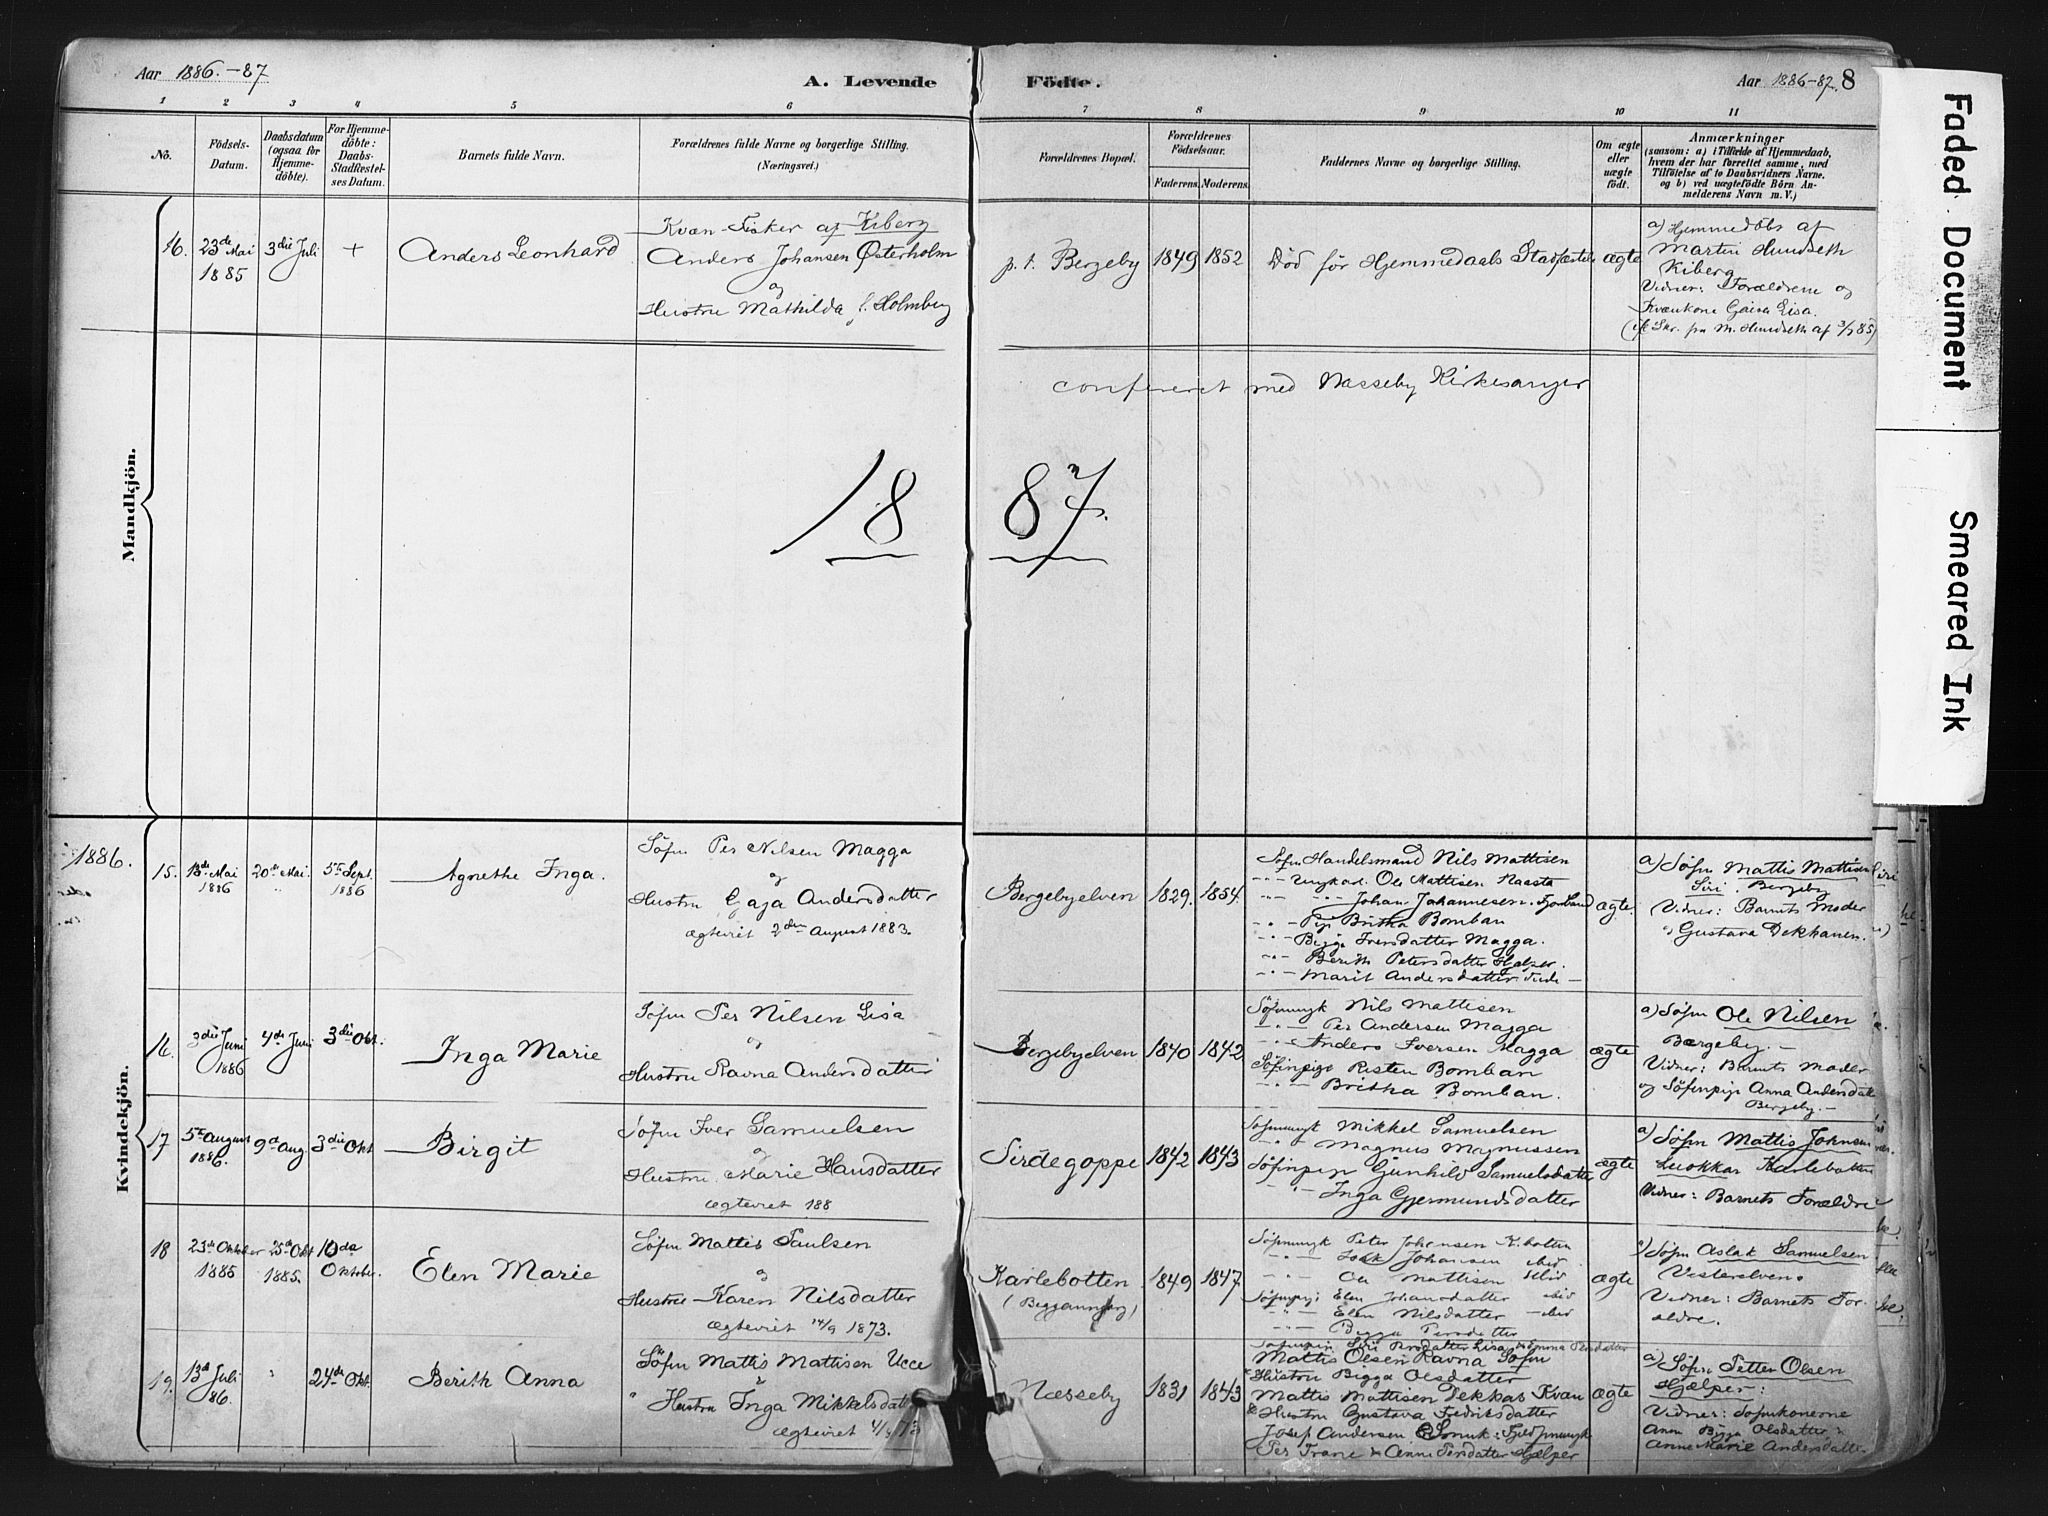 Aar 1886.-87
A. Levende
Födte.
Aar 1886-87. 8
1 2 3 4 5 6 7 8 9 10 11
No.
Födsels-Datum.
Daabsdatum (ogsaa for Hjemme-döbte).
For Hjemme-döbte: Daabs-Stadfæstel-ses Datum.
Barnets fulde Navn.
Forældrenes fulde Navne og borgerlige Stilling.
(Næringsvei.)
Forældrenes Bopæl.
Forældrenes Födselsaar.
Faderens. Moderens.
Faddernes Navne og borgerlige Stilling.
Om ægte eller uægte födt.
Anmærkninger
(saasom: a) i Tilfælde af Hjemmedaab,
hvem der har forrettet samme, med
Tilföielse af to Daabsvidners Navne,
og b) ved uægtefödte Börn An-
melderens Navn m. V.)
Mandkjön.
16.
23de Mai
1885
3die Juli
+
Anders Leonhard
Kvæn-Fisker af Kiberg
Anders Johansen Østerholm
og
Hustru Mathilda f. Holmberg
p. t. Bergeby
1849
1852
Död før Hjemmedaabs Stadfæstelse
ægte
a) Hjemmedöbt af
Martin Hundseth
Kiberg
Vidner: Forældrene og
Kvænkone Gaisa Lisa.
(cfr Skr. fra M. Hundseth af 3/7 85)
confereret med Næsseby Kirkesanger
18 87.
Kvindekjön.
1886.
15.
18de Mai
1886
20de Mai.
5te Sept.
1886
Agnethe Inga.
Söfin Per Nilsen Magga
og
Hustru Gaja Andersdatter
ægteviet 2den August 1883.
Bergebyelven
1829.
1854.
Söfin Handelsmand Nils Mattisen
-"- Ungkarl Ole Mattisen Naasta
-"- -"- Johan Johannesen
-"- Pige Britha Bomban
-"- Bigga Iversdatter Magga.
-"- Berith Petersdatter Hjelper.
-"- Marit Andersdatter
ægte.
a) Söfin Mattis Mattisen
Siri. Bergeby
Vidner: Barnets Moder
og Gustava Dekkanen.
16.
3die Juni
1886
4de Juni
3die Okt.
Inga Marie
Söfin Per Nilsen Lisa
og
Hustru Ravna Andersdatter
Bergebyelven
1840
1842
Söfinungk Nils Mattisen
-"- Per Andersen Magga
-"- Anders Iversen Magga
Söfinpige Risten Bomban
-"- Britha Bomban.
ægte
a) Söfin Ole Nilsen
Bergeby.-
Vidner: Barnets Moder
og Söfinpige Anna Andersdat
Bergeby.-
17
5te August
1886.
9d Aug.
3die Okt
Birgit
Söfin Iver Samuelsen
og
Hustru Marie Hansdatter
ægteviet 188
Sirdegoppe
1842
1843
Söfinungk Mikkel Samuelsen
-"- Magnus Magnussen
Söfinpige Gunhild Samuelsdatter
-"- Inga Gjermundsdatter
ægte
a) Söfin Mattis Johnsen
Luokkar Karlebotten
Vidner: Barnets Forældre
18
23de Oktober
1885
25de Okt
1885.
10da
Oktober.
Elen Marie
Söfin Mattis Paulsen
og
Hustru Karen Nilsdatter
ægteviet 14/9 1873.
Karlebotten
1849
1847
Söfinungk Peter Johansen K.botten
-"- Isak Johansen ibid
-"- Ole Mattisen ibid
Söfinpige Elen Johansdatter ibid
-"- Elen Nilsdatter ibid
-"- Bigga Persdatter
ægte
a) Söfin Aslak Samuelsen
Vesterelven.
Vidner: Barnets For-
ældre.
19.
13de Juli
86.
"
24de Okt.
Berith Anna
Söfin Mattis Mattisen Ucce
&
" Hustru Inga Mikkelsdatt
ægteviet
Næsseby
1831
1843
Mattis Olsen Ravna Söfin
& Hustru Bigga Olsdatter
Mattis Mattisen Dekkas Kvæn
& Hustru Gustava Fredriksdatter
Josef Andersen
Per Trane & Anne Persdatter Hjelper
ægte
a) Söfin Petter Olsen
Hjælper:
Vidner: Sofinkonerne
Anna Bigga Olsdatter &
Anne Marie Andersdatter
Faded Document
Smeared Ink